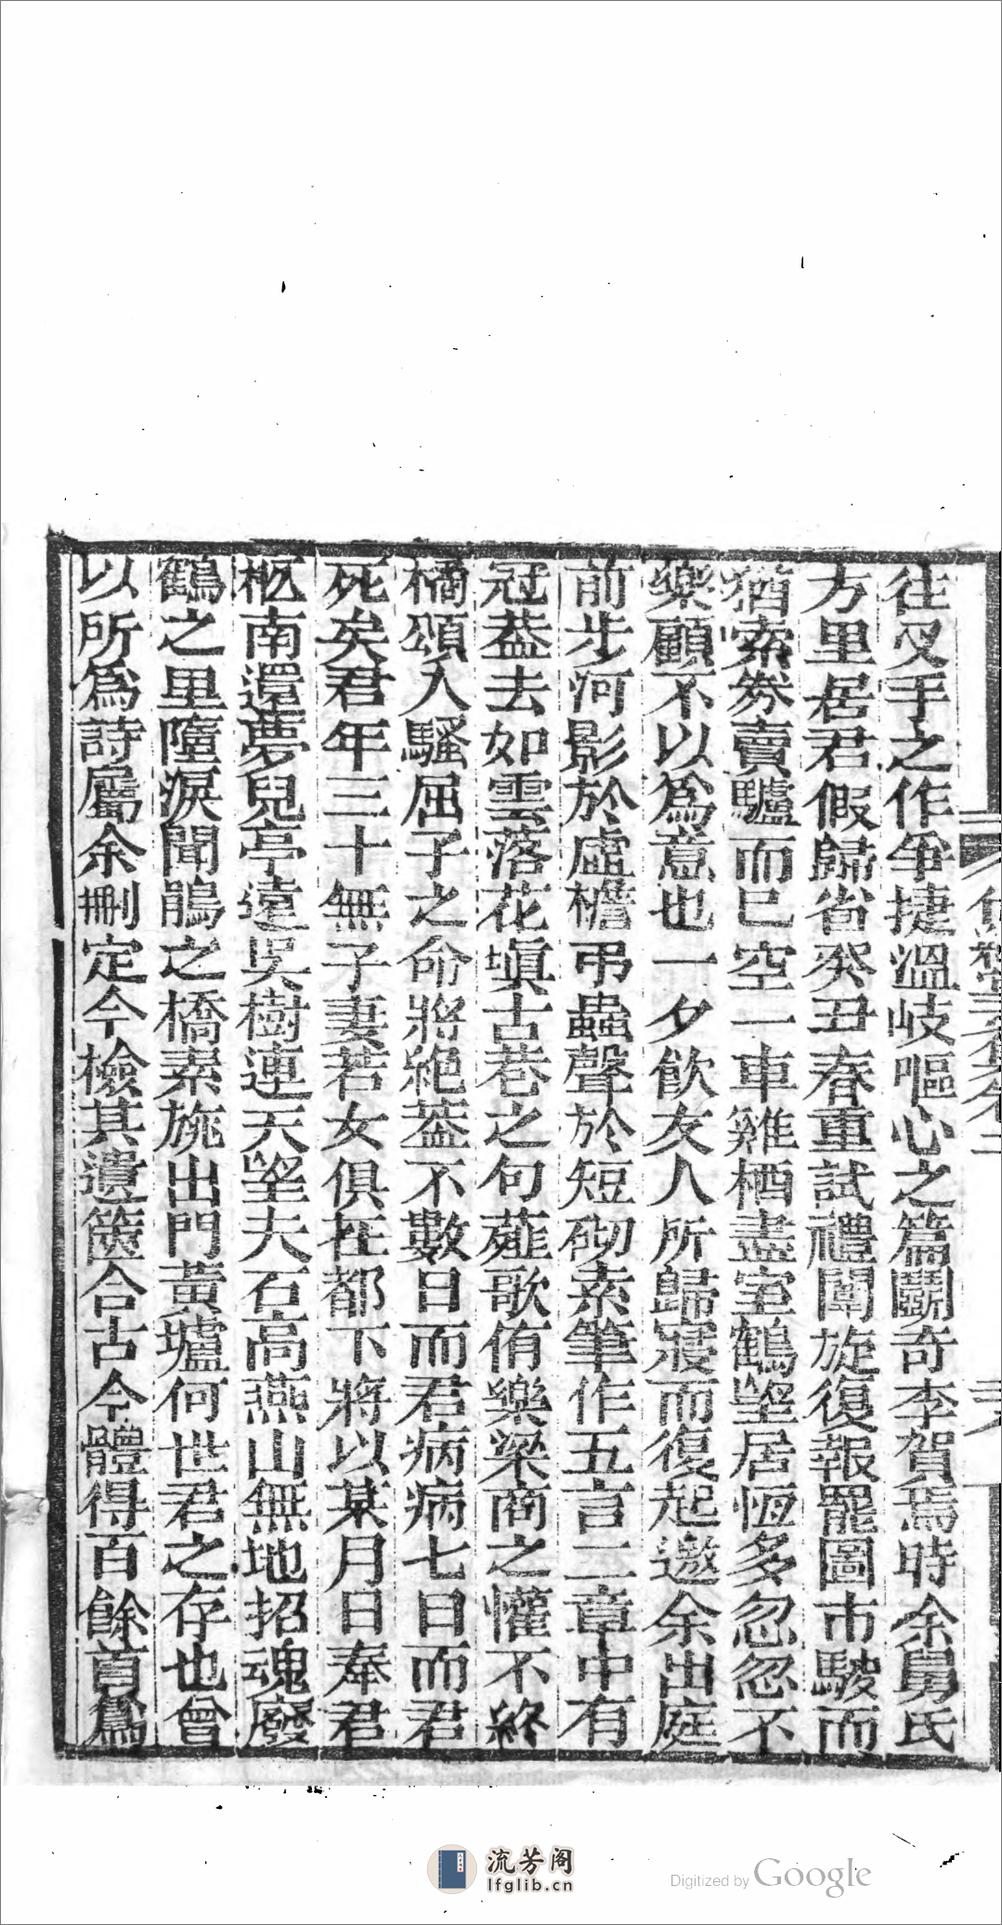 往叉手之作爭捷溫岐嘔心之篇鬭奇李賀焉時余舅氏
方里居君假歸省癸丑春重試禮闈旋復報罷圖市駿而
猶索劵賣驢而已空一車雞栖盡室鶴望居恆多忽忽不
樂顧不以爲意也一夕飲友人所歸寢而復起邀余出庭
前步河影於虛檐弔蟲聲於短砌索筆作五言二章中有
冠葢去如雲落花塡古巷之句薤歌侑樂梁商之懽不終
橘頌入騷屈子之命將絕葢不數日而君病病七日而君
死矣君年三十無子妻若女俱在都下將以某月日奉君
柩南還夢兒亭遠吳樹連天望夫石高燕山無地招魂廢
鶴之里墮淚聞鵑之橋素旐出門黃壚何世君之存也曾
以所爲詩屬余刪定今檢其遺篋合古今體得百餘首爲
流芳阁
lfglib.cn
Digitized by Google